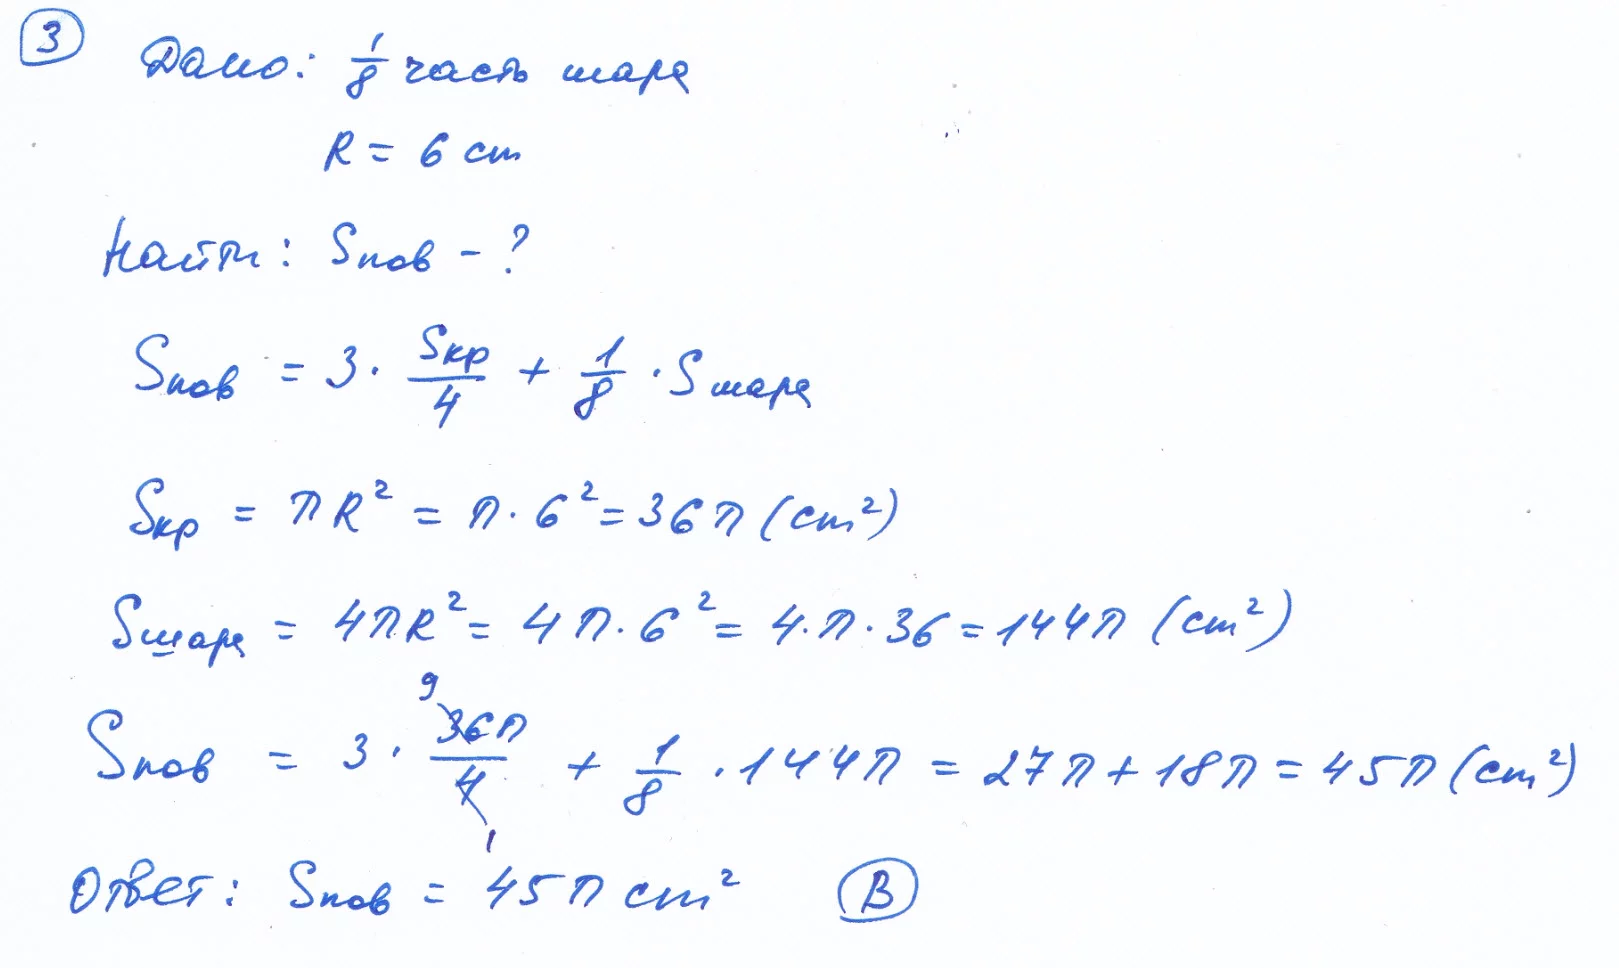 3 Дано: 1/8 часть шара
R = 6 cm
Найти: Sпов - ?
Sпов = 3 · Sкр/4 + 1/8 · Sшара
Sкр = πR² = π · 6² = 36π (cm²)
Sшара = 4πR² = 4π · 6² = 4 · π · 36 = 144π (cm²)
9
Sпов = 3 · 36π/4 + 1/8 · 144π = 27π + 18π = 45π (cm²)
1
Ответ: Sпов = 45π cm² B